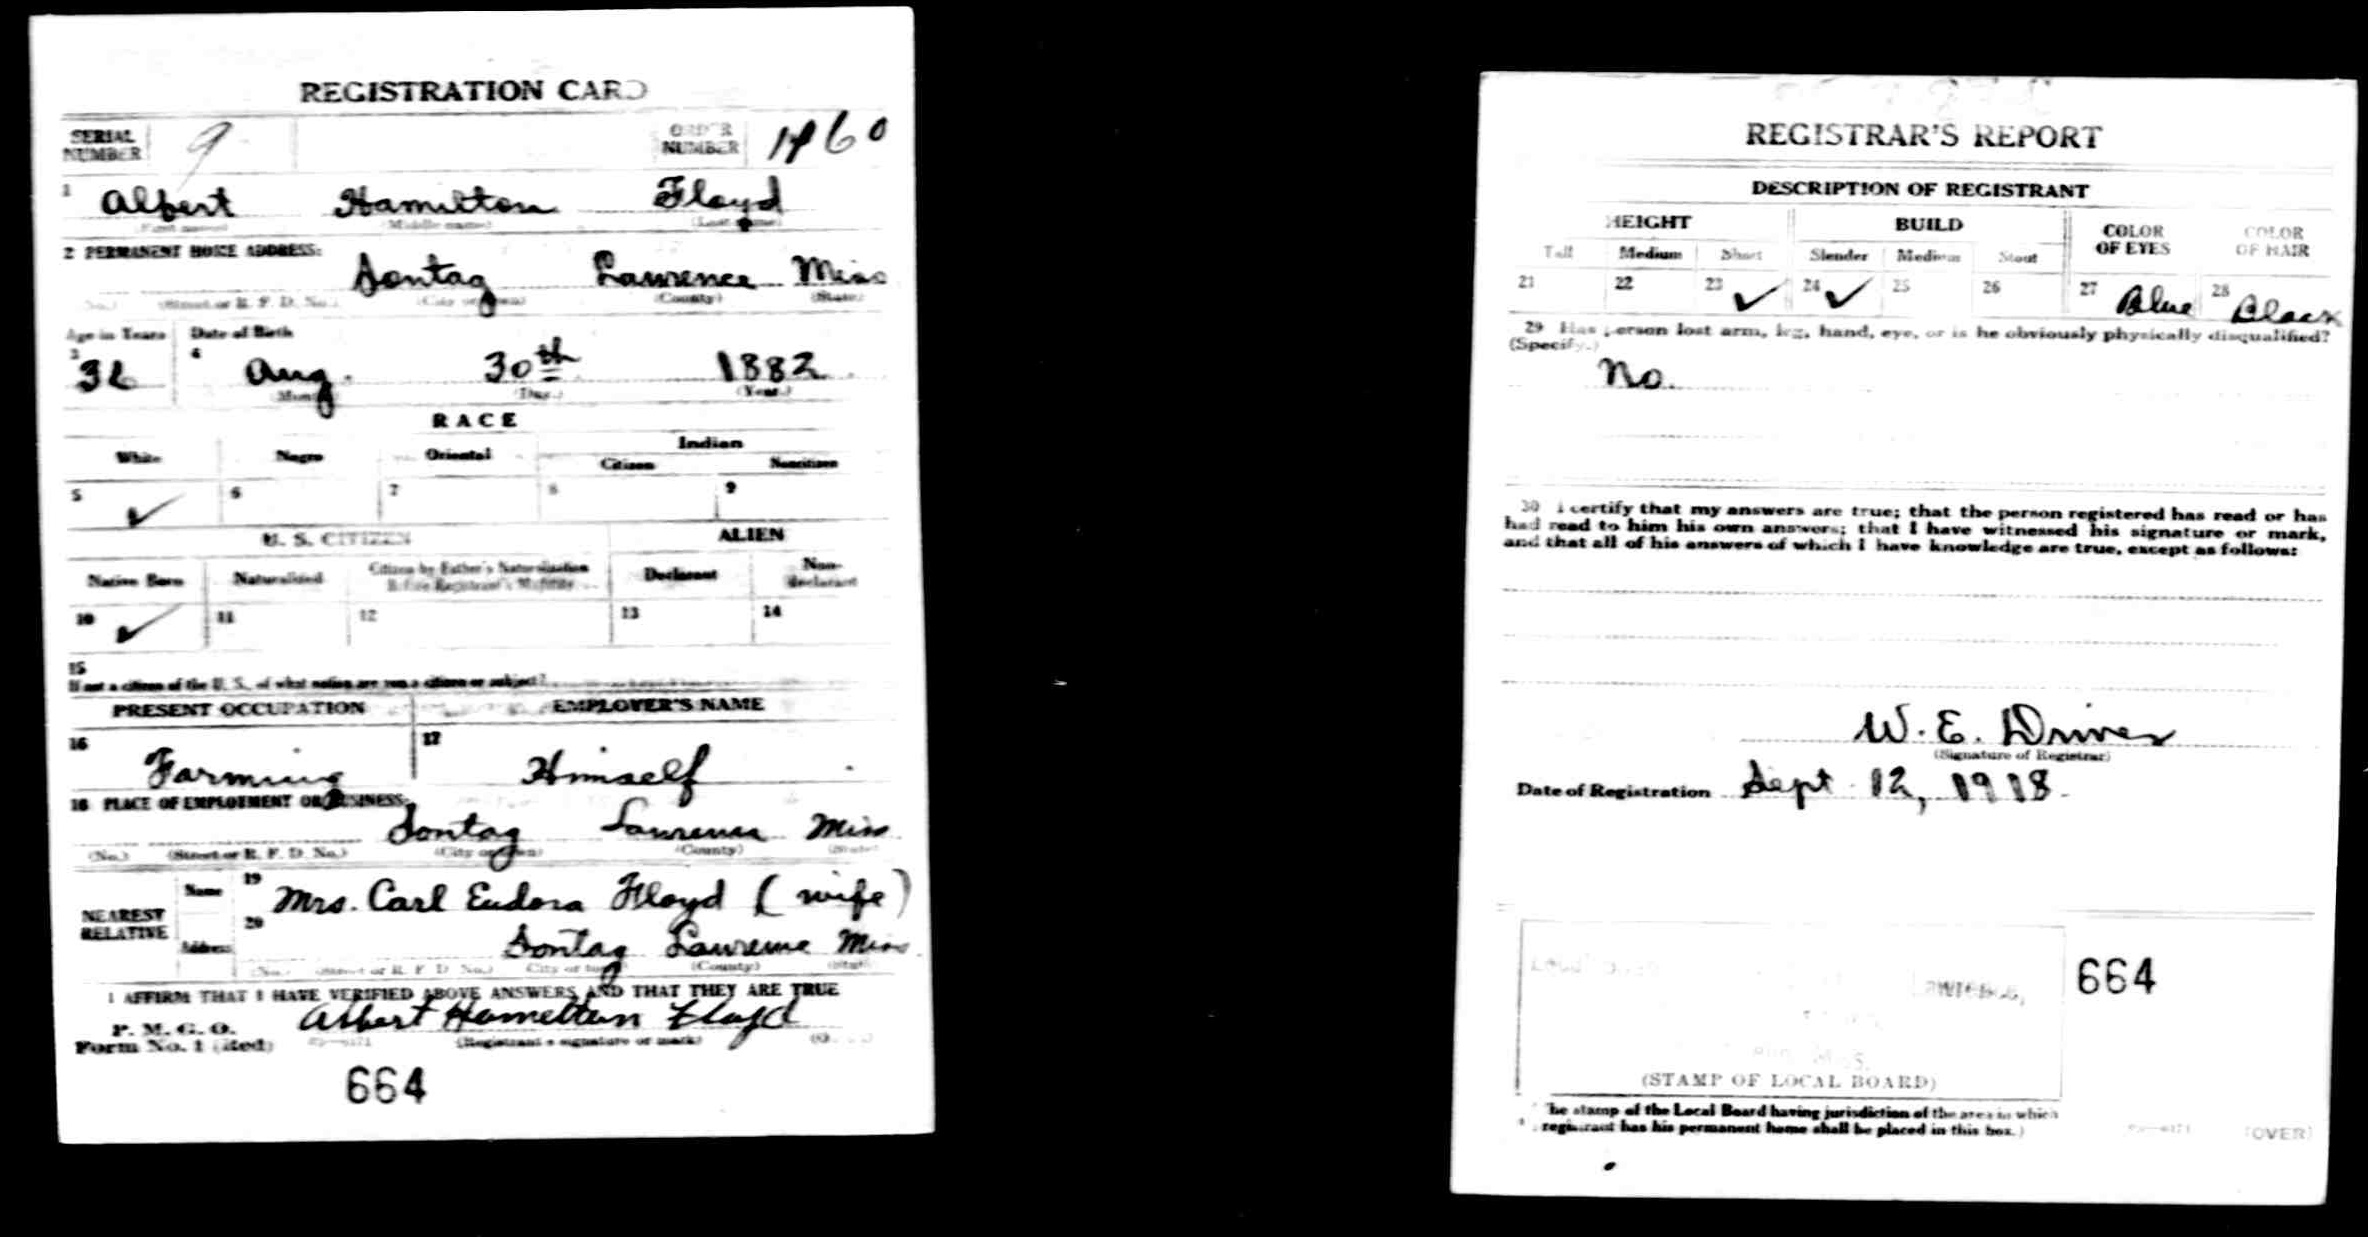 REGISTRATION CARD
SERIAL NUMBER 9 ORDER NUMBER 1460
1 Albert Hamilton Floyd
(First name) (Middle name) (Last name)
2 PERMANENT HOME ADDRESS:
Sontag Lawrence Miss
(No.) (Street or R. F. D. No.) (City or town) (County) (State)
Age in Years Date of Birth
3 36 4 Aug. 30th 1882
(Month) (Day.) (Year.)
RACE
White Negro Oriental Indian
Citizen Noncitizen
5 ✓ 6 7 8 9
U. S. CITIZEN ALIEN
Native Born Naturalized Citizen by Father's Naturalization Before Registrant's Majority Declarant Non-declarant
10 ✓ 11 12 13 14
15
If not a citizen of the U. S., of what nation are you a citizen or subject?
PRESENT OCCUPATION EMPLOYER'S NAME
16 Farming 17 Himself
18 PLACE OF EMPLOYMENT OR BUSINESS:
Sontag Lawrence Miss
(No.) (Street or R. F. D. No.) (City or town) (County) (State)
NEAREST RELATIVE
Name 19 Mrs. Carl Eudora Floyd (wife)
Address 20 Sontag Lawrence Miss
(No.) (Street or R. F. D. No.) (City or town) (County) (State)
I AFFIRM THAT I HAVE VERIFIED ABOVE ANSWERS AND THAT THEY ARE TRUE
P. M. G. O.
Form No. 1 (Red) Albert Hamelton Floyd
(Registrant's signature or mark)
664
REGISTRAR'S REPORT
DESCRIPTION OF REGISTRANT
HEIGHT BUILD COLOR OF EYES COLOR OF HAIR
Tall Medium Short Slender Medium Stout
21 22 23 ✓ 24 ✓ 25 26 27 Blue 28 Black
29 Has person lost arm, leg, hand, eye, or is he obviously physically disqualified?
(Specify.)
No.
30 I certify that my answers are true; that the person registered has read or has
had read to him his own answers; that I have witnessed his signature or mark,
and that all of his answers of which I have knowledge are true, except as follows:
W. E. Driver
(Signature of Registrar)
Date of Registration Sept 12, 1918.
664
(STAMP OF LOCAL BOARD)
The stamp of the Local Board having jurisdiction of the area in which
registrant has his permanent home shall be placed in this box.)
(OVER)